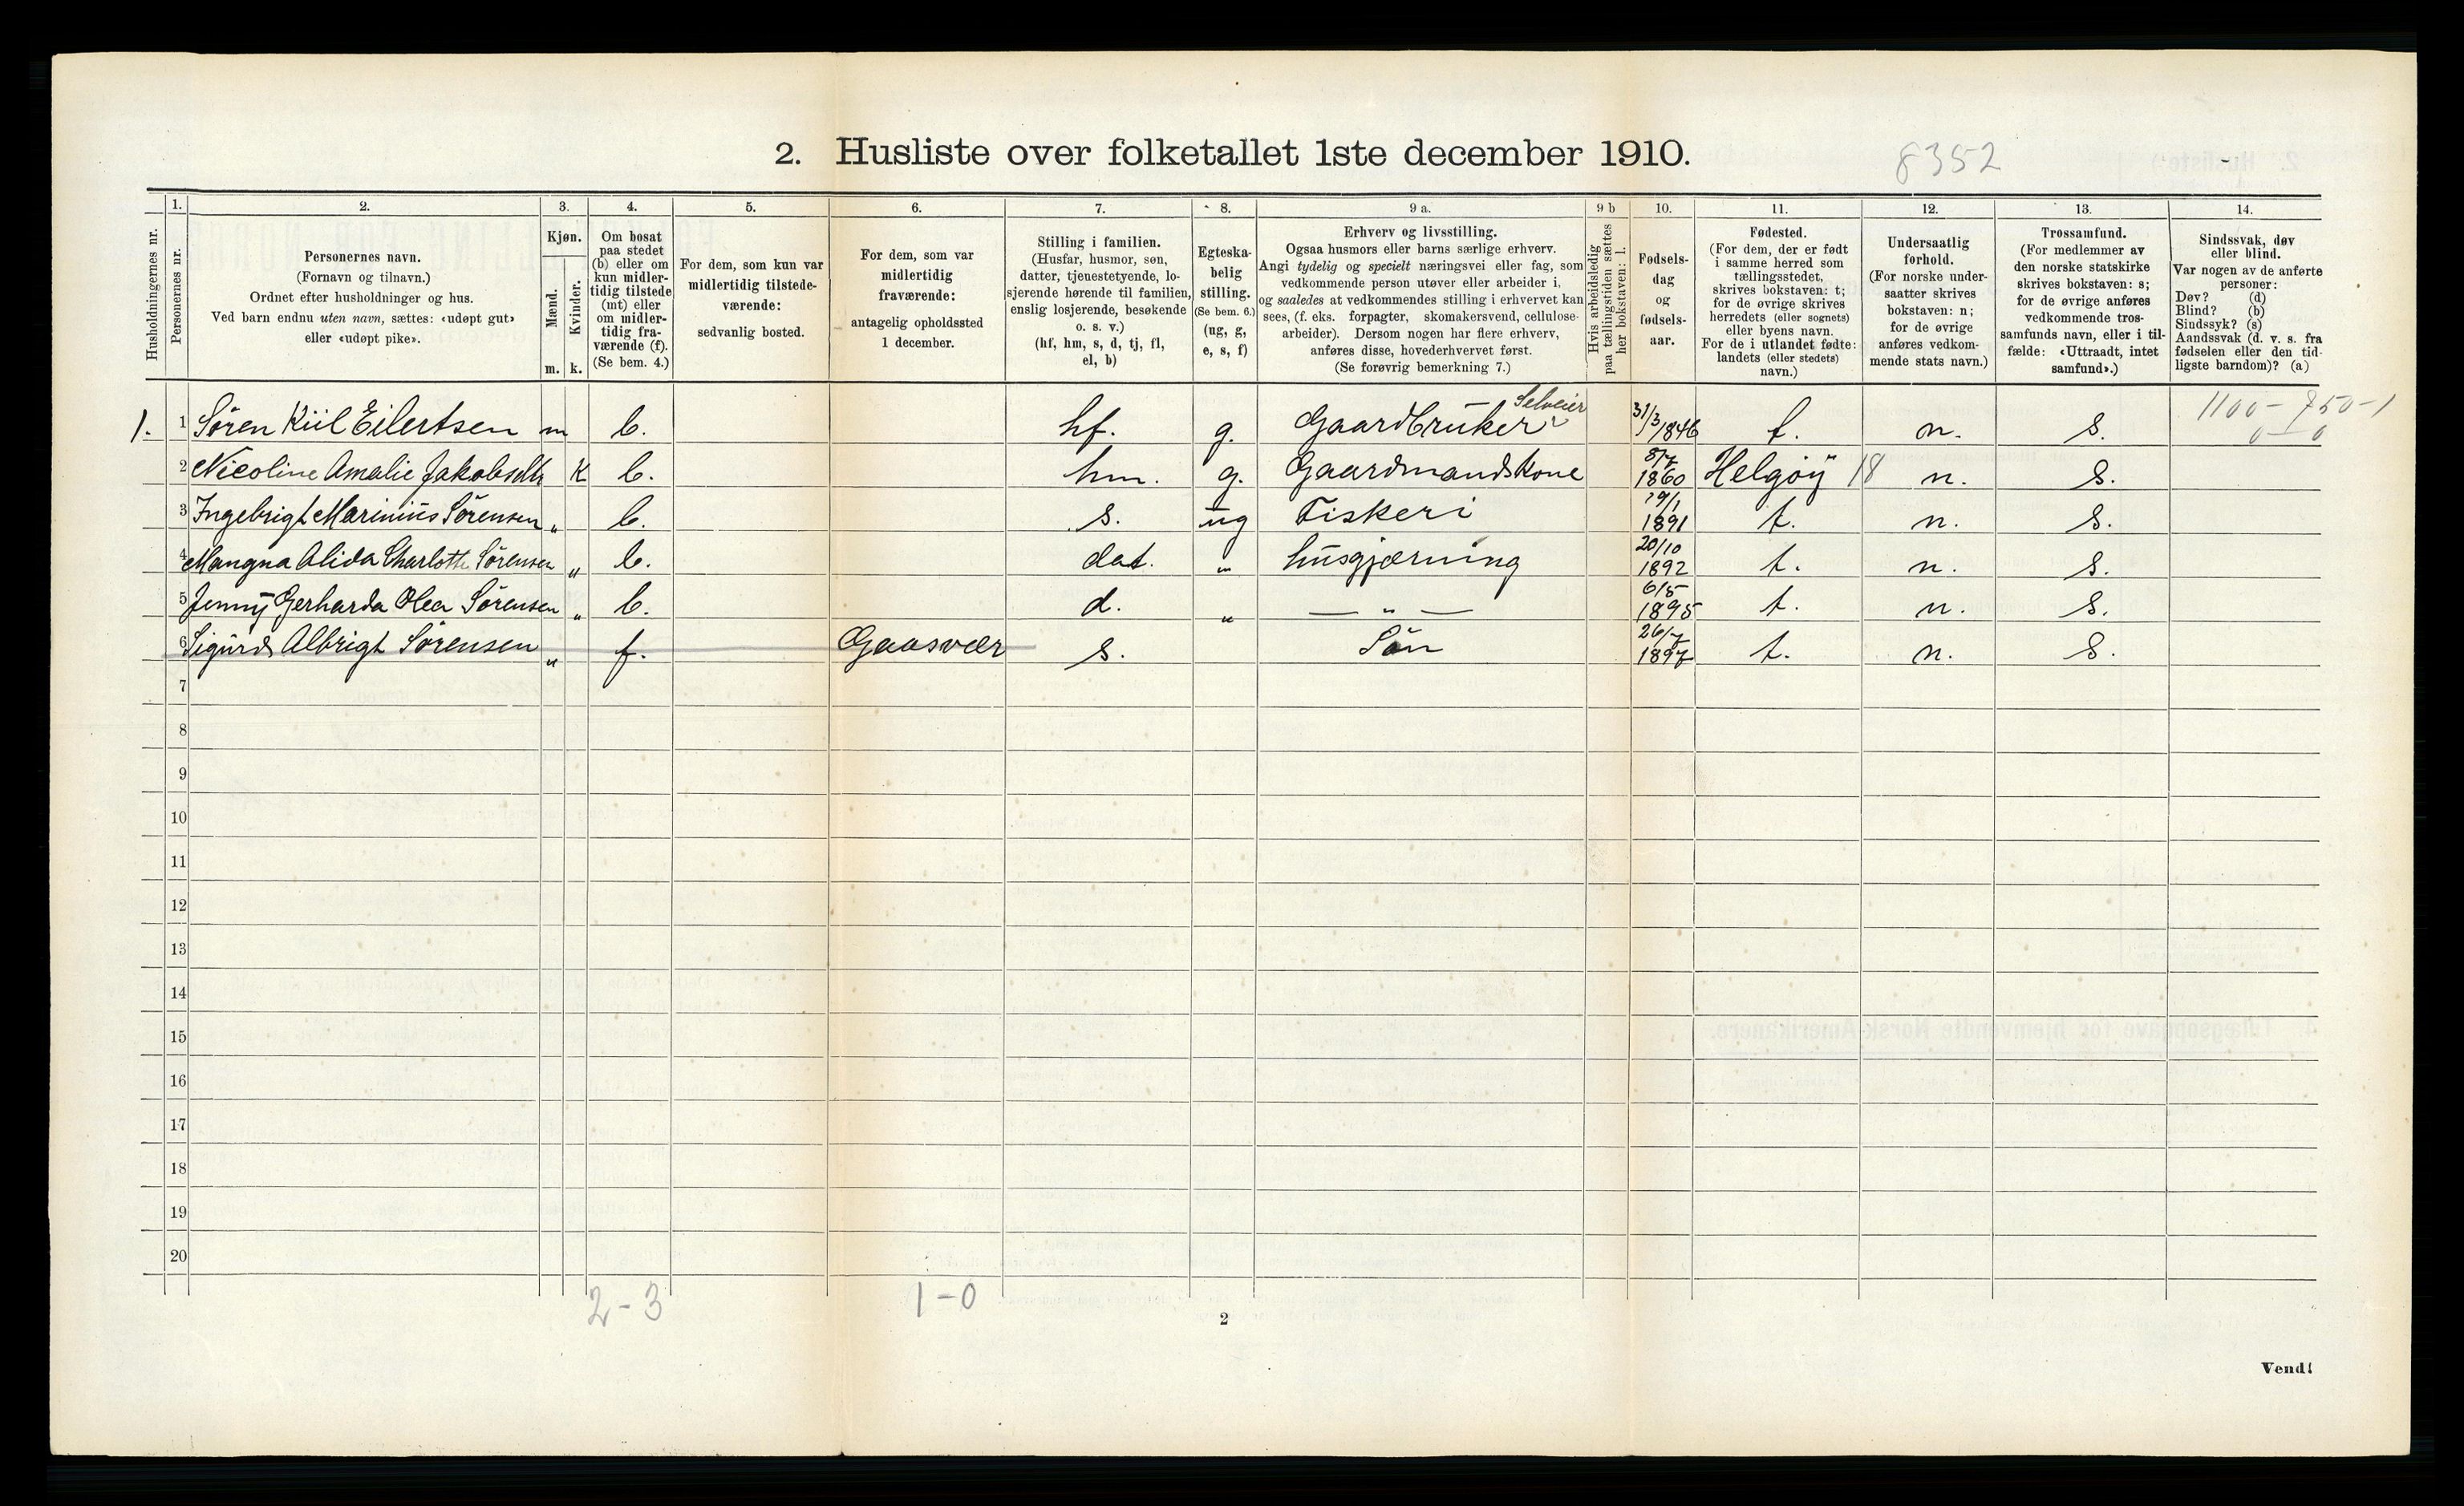 2. Husliste over folketallet 1ste december 1910.
8352
Husholdningernes nr.
1.
Personernes nr.
2.
Personernes navn.
(Fornavn og tilnavn.)
Ordnet efter husholdninger og hus.
Ved barn endnu uten navn, sættes: «udøpt gut»
eller «udøpt pike».
3.
Kjøn.
Mænd.
Kvinder.
m. k.
4.
Om bosat
paa stedet
(b) eller om
kun midler-
tidig tilstede
(mt) eller
om midler-
tidig fra-
værende (f).
(Se bem. 4.)
5.
For dem, som kun var
midlertidig tilstede-
værende:
sedvanlig bosted.
6.
For dem, som var
midlertidig
fraværende:
antagelig opholdssted
1 december.
7.
Stilling i familien.
(Husfar, husmor, søn,
datter, tjenestetyende, lo-
sjerende hørende til familien,
enslig losjerende, besøkende
o. s. v.)
(hf, hm, s, d, tj, fl,
el, b)
8.
Egteska-
belig
stilling.
(Se bem. 6.)
(ug, g,
e, s, f)
9 a.
Erhverv og livsstilling.
Ogsaa husmors eller barns særlige erhverv.
Angi tydelig og specielt næringsvei eller fag, som
vedkommende person utøver eller arbeider i,
og saaledes at vedkommendes stilling i erhvervet kan
sees, (f. eks. forpagter, skomakersvend, cellulose-
arbeider). Dersom nogen har flere erhverv,
anføres disse, hovederhvervet først.
(Se forøvrig bemerkning 7.)
9 b
Hvis arbeidsledig
paa tællingstiden sættes
her bokstaven: l.
10.
Fødsels-
dag
og
fødsels-
aar.
11.
Fødested.
(For dem, der er født
i samme herred som
tællingsstedet,
skrives bokstaven: t;
for de øvrige skrives
herredets (eller sognets)
eller byens navn.
For de i utlandet fødte:
landets (eller stedets)
navn.)
12.
Undersaatlig
forhold.
(For norske under-
saatter skrives
bokstaven: n;
for de øvrige
anføres vedkom-
mende stats navn.)
13.
Trossamfund.
(For medlemmer av
den norske statskirke
skrives bokstaven: s;
for de øvrige anføres
vedkommende tros-
samfunds navn, eller i til-
fælde: «Uttraadt, intet
samfund».)
14.
Sindssvak, døv
eller blind.
Var nogen av de anførte
personer:
Døv? (d)
Blind? (b)
Sindssyk? (s)
Aandssvak (d. v. s. fra
fødselen eller den tid-
ligste barndom)? (a)
1. 1 Sören Kiil Eilertsen m b. hf. g. Gaardbruker Selveier 31/3 1846 t. n. S. 1100-750-1
0-0
2 Nicoline Amalie Jakobsdtr K b. hm. g. Gaardmandskone 8/7 1860 Helgöy 18 n. S.
3 Ingebrigt Marinius Sörensen „ b. s. ug Fiskeri 19/1 1891 t. n. S.
4 Mangna Alida Charlotte Sörensen „ b. dat. „ husgjærning 20/10 1892 t. n. S.
5 Jenny Gerharda Olea Sörensen „ b. d. „ — „ — 6/5 1895 t. n. S.
6 Sigurd Albrigt Sörensen „ f. Gaasvær s. Sön 26/7 1897 t. n. S.
7
8
9
10
11
12
13
14
15
16
17
18
19
20
2-3 1-0
2
Vend!